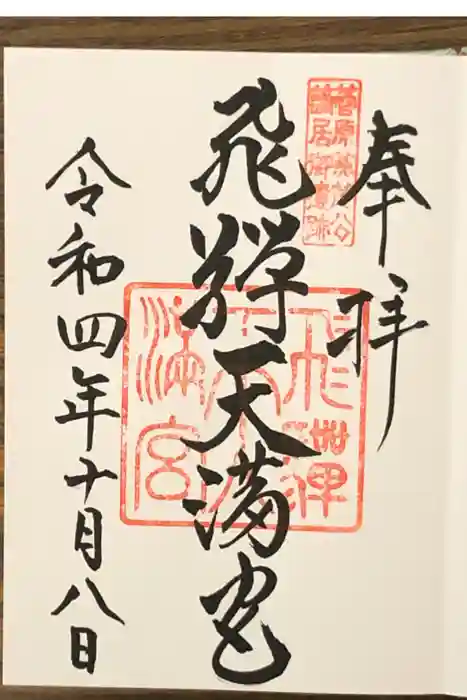 奉拝
菅原兼茂公
謫居御遺跡
飛騨天満宮
飛騨天満宮
令和四年十月八日